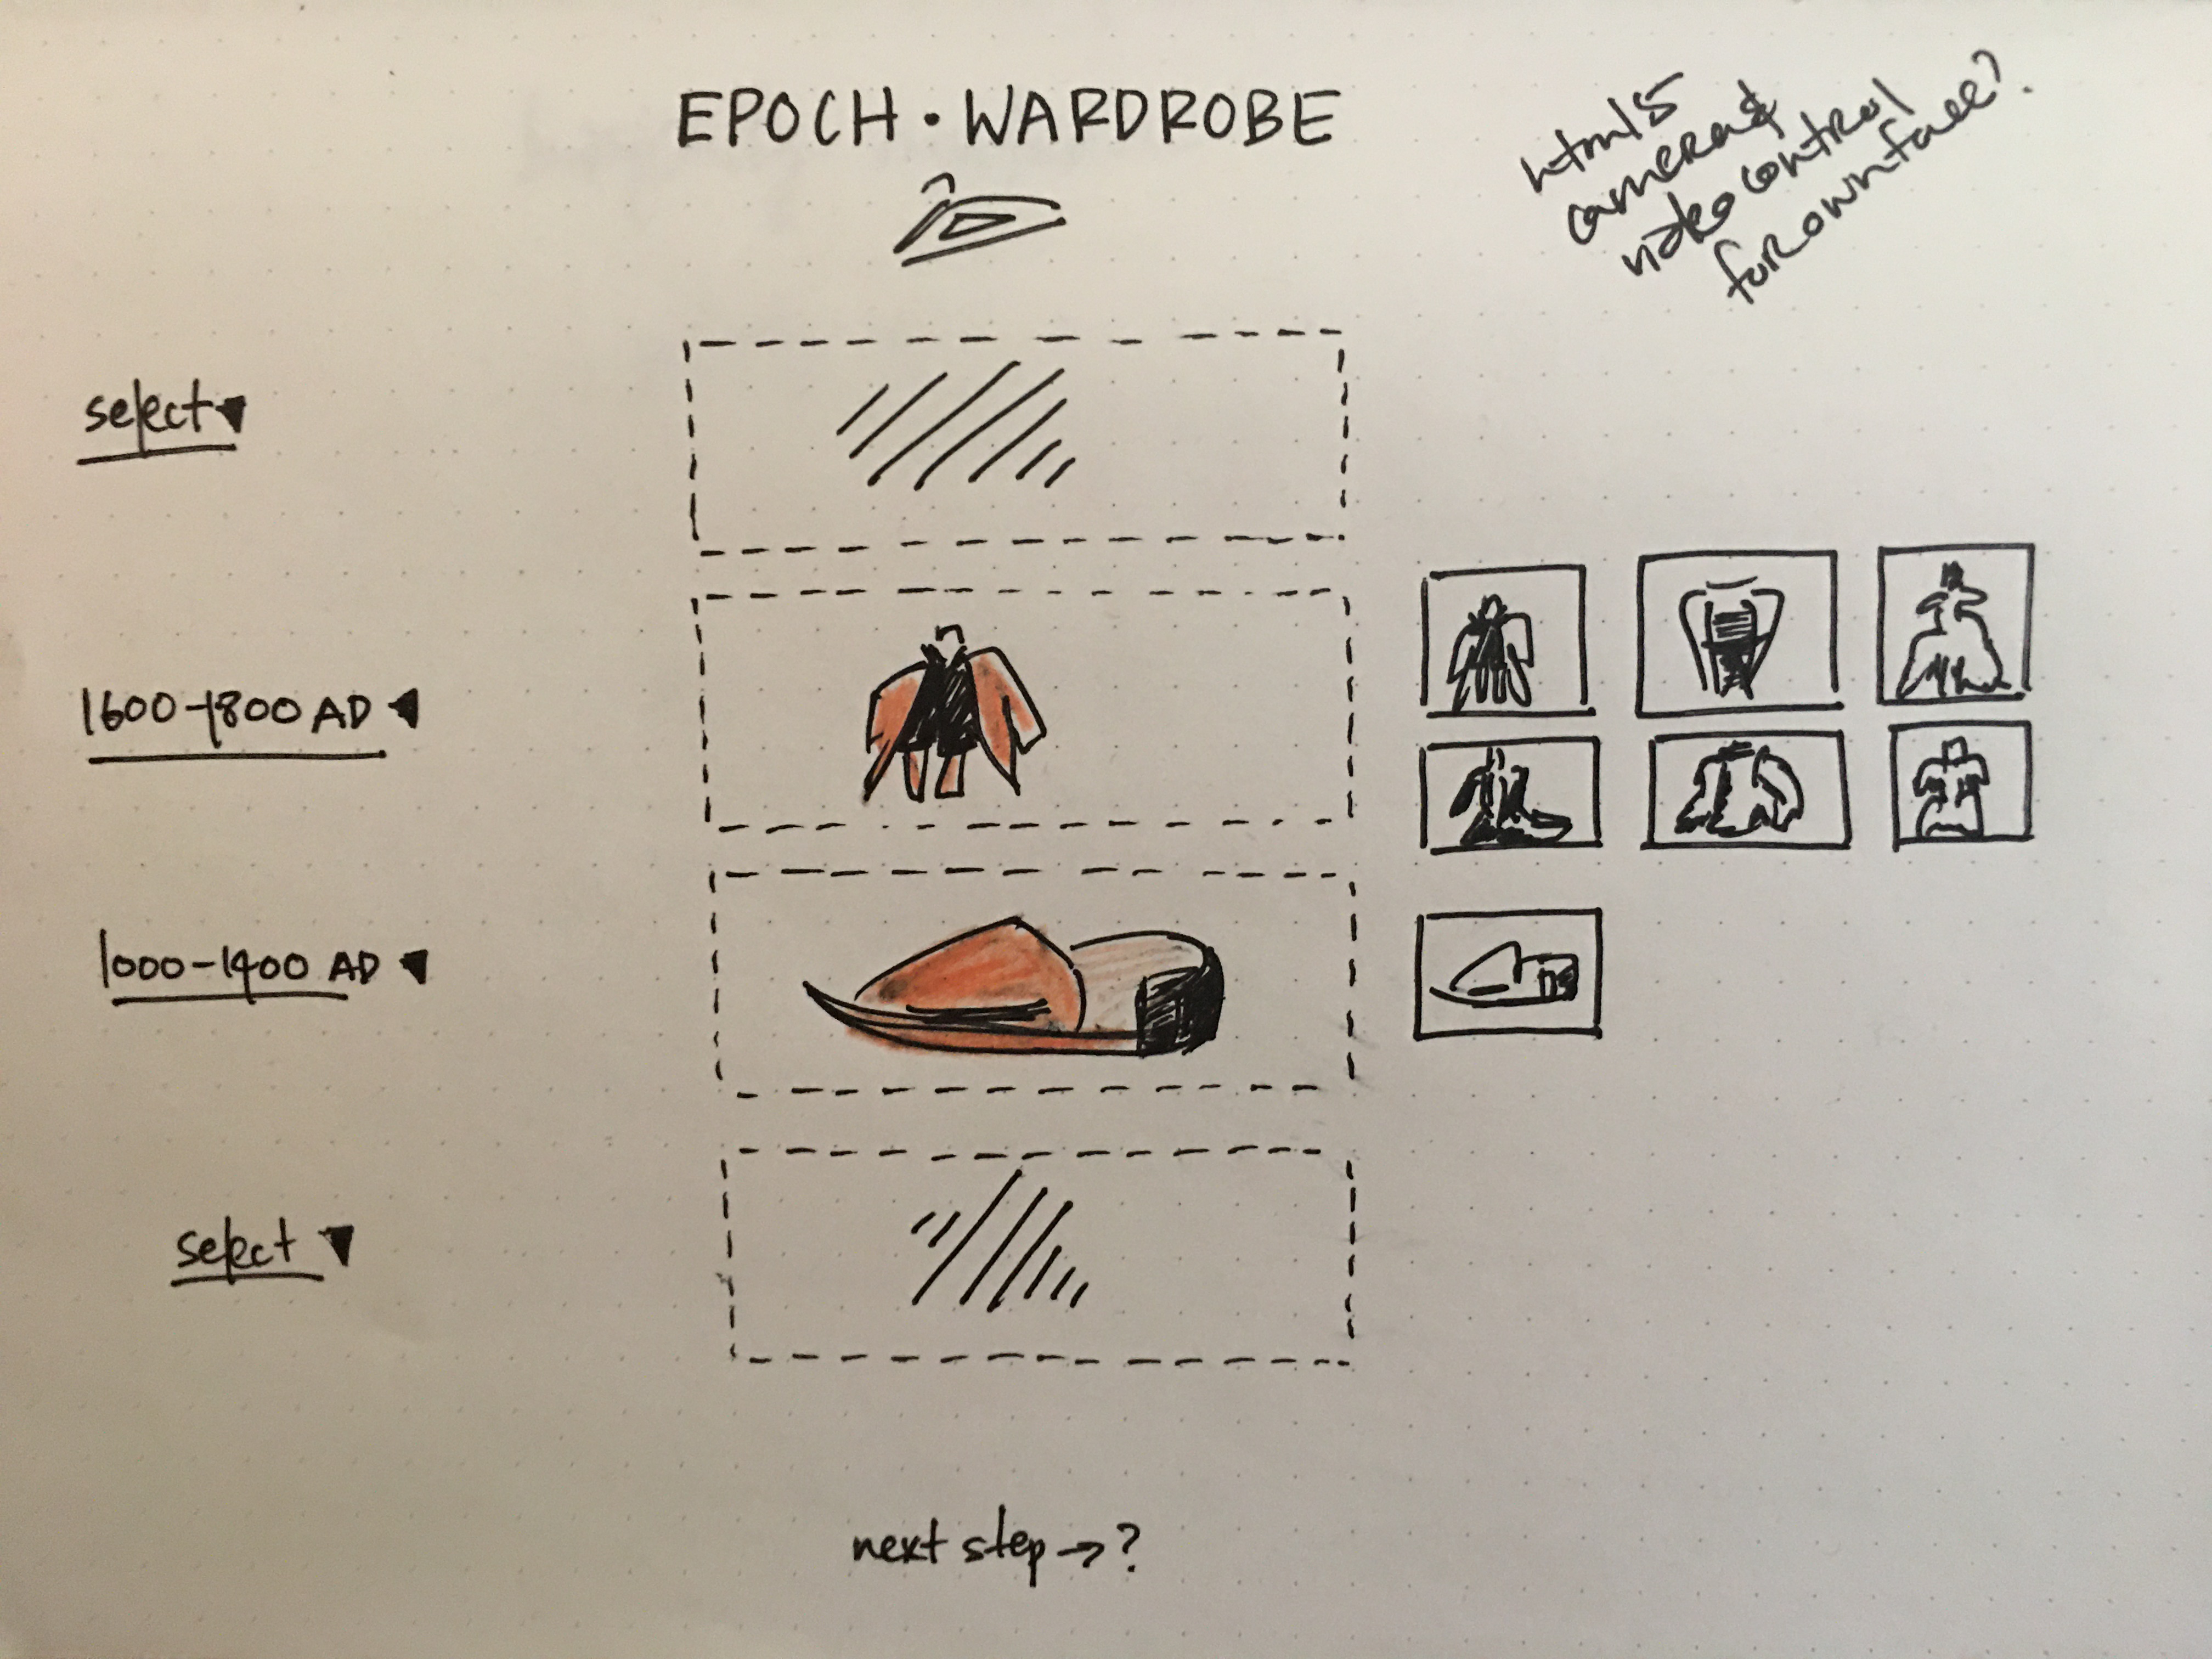 EPOCH • WARDROBE
html5
camera &
video control
for own face?
select ▼
1600-1800 AD ◀
1000-1400 AD ◀
select ▼
next step → ?